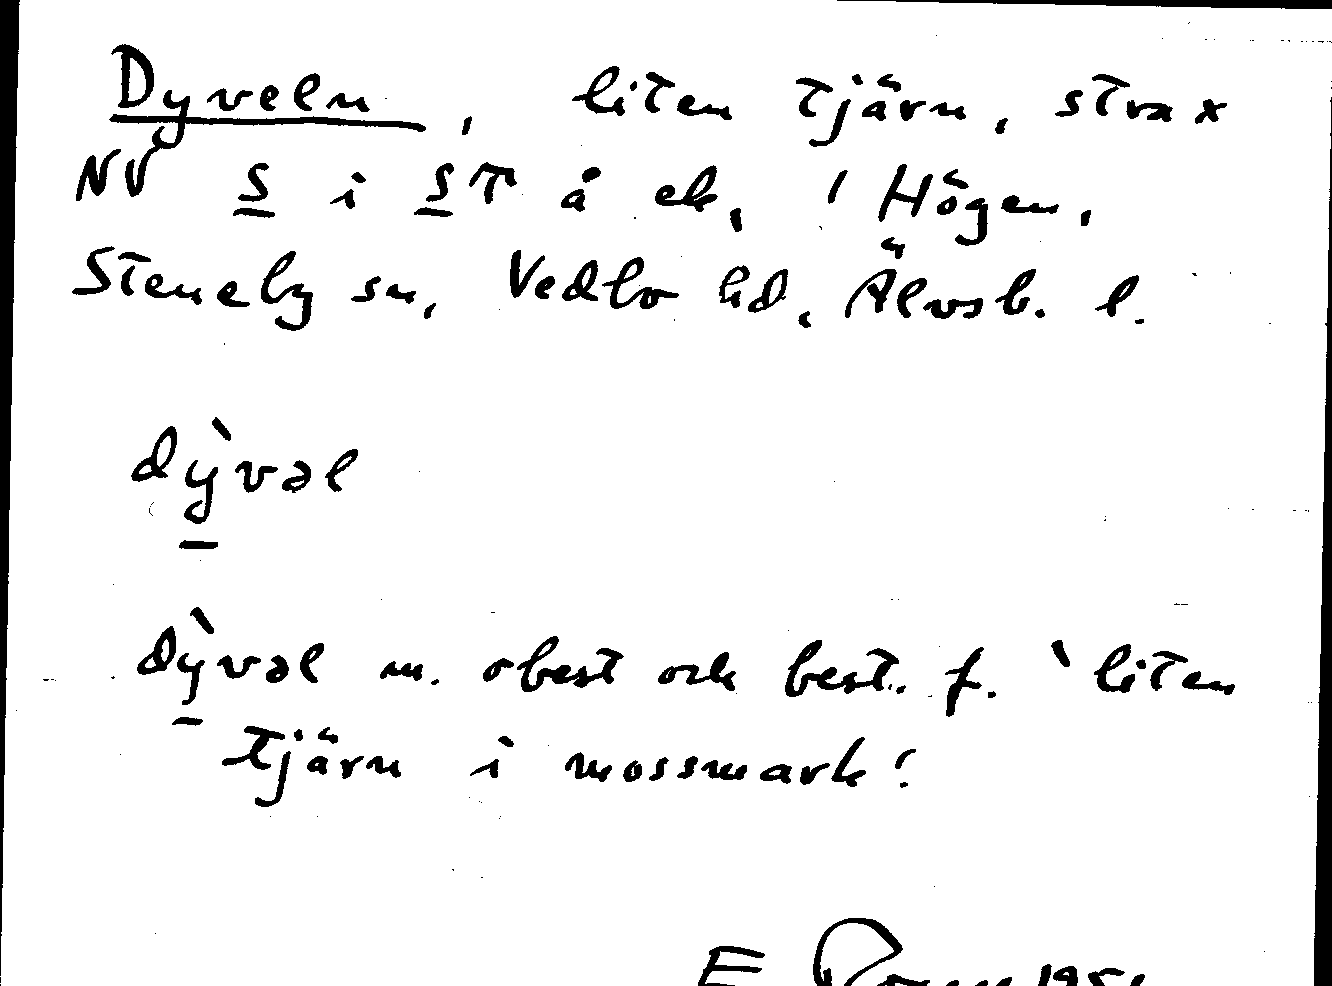 Dyveln, liten tjärn, strax
NV S i ST å ek, i Högen,
Steneby sn, Vedbo hd, Älvsb. l.
dỳvəl
dỳvəl m. obest och best. f. 'liten
tjärn i mossmark'.
E